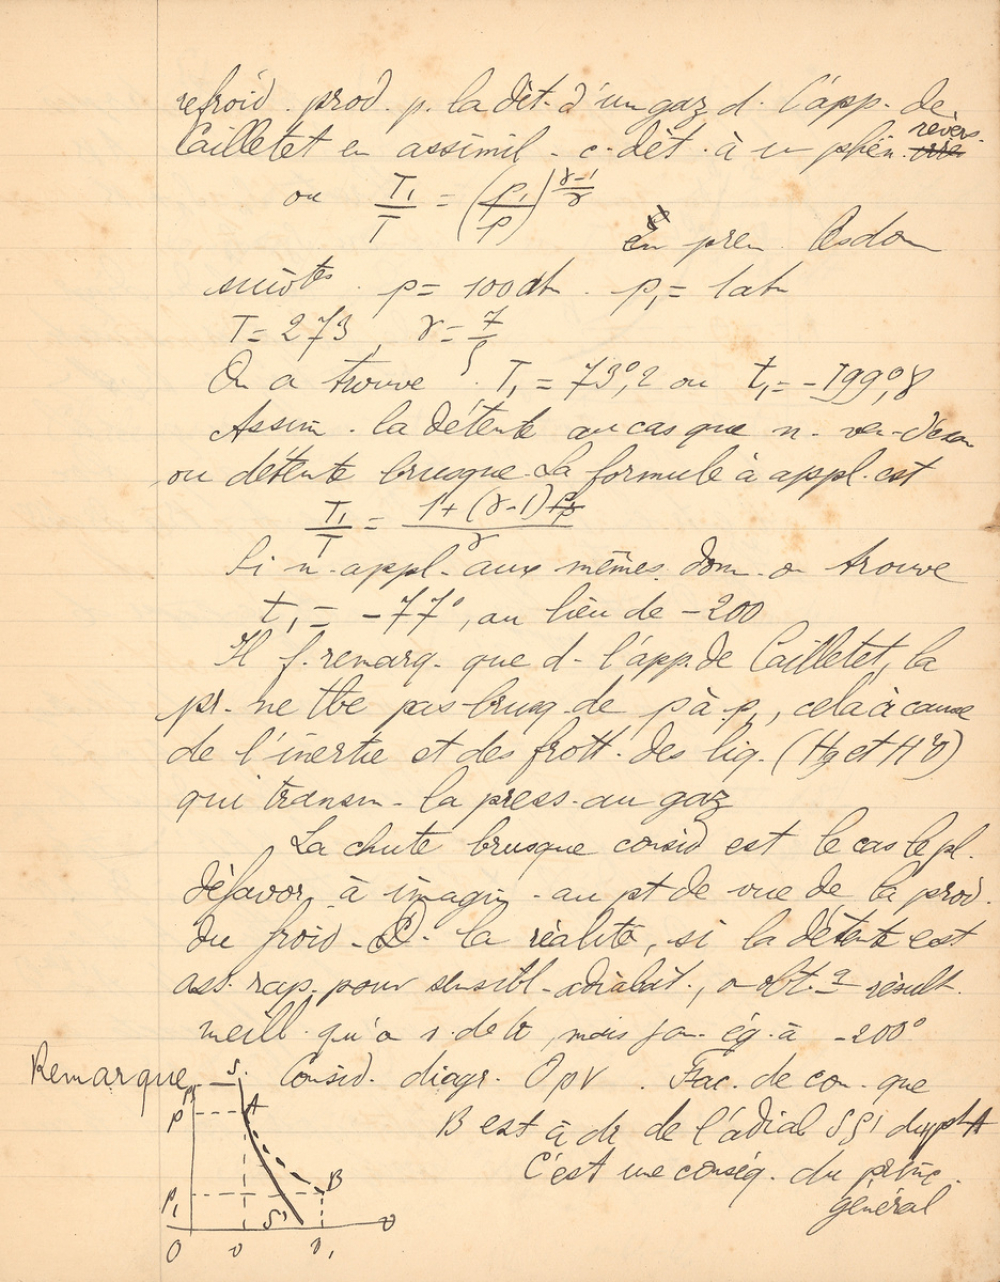 refroid. prod. p. la dét. d'un gaz d. l'app. de
Cailletet en assimil. c. dét. à un phén. révers.
ou T₁/T = (p₁/p)^((γ-1)/γ)
En pren les don
suivtes. p = 100 at. p₁ = 1 at
T = 273, γ = 7/5
On a trouvé T₁ = 73°,2 ou t₁ = -199°,8
Assim. la détente au cas que n. ven. d'exam
ou détente brusque. La formule à appl. est
T₁/T = (1 + (γ-1) p₁/p)/γ
Si n. appl. aux mêmes don. on trouve
t₁ = -77°, au lieu de -200
Il f. remarq. que d. l'app. de Cailletet, la
pr. ne tbe pas brusq. de p à p₁, cela à cause
de l'inertie et des frott. des liq. (Hg et H²O)
qui transm. la press. au gaz
La chute brusque consid est le cas le pl.
défavor. à imagin. au pt de vue de la prod.
du froid. D. la réalité, si la détente est
ass. rap. pour sensibl. adiabat., on obt. résult.
meill. qu'on, mais jam. ég. à -200°
Remarque. Consid. diagr. Opv. Fac. de con. que
B est à dr. de l'adiab SS' du pt A
C'est une conséq. du princ.
général
p
S
p A
p₁ B
S'
v
O v v₁